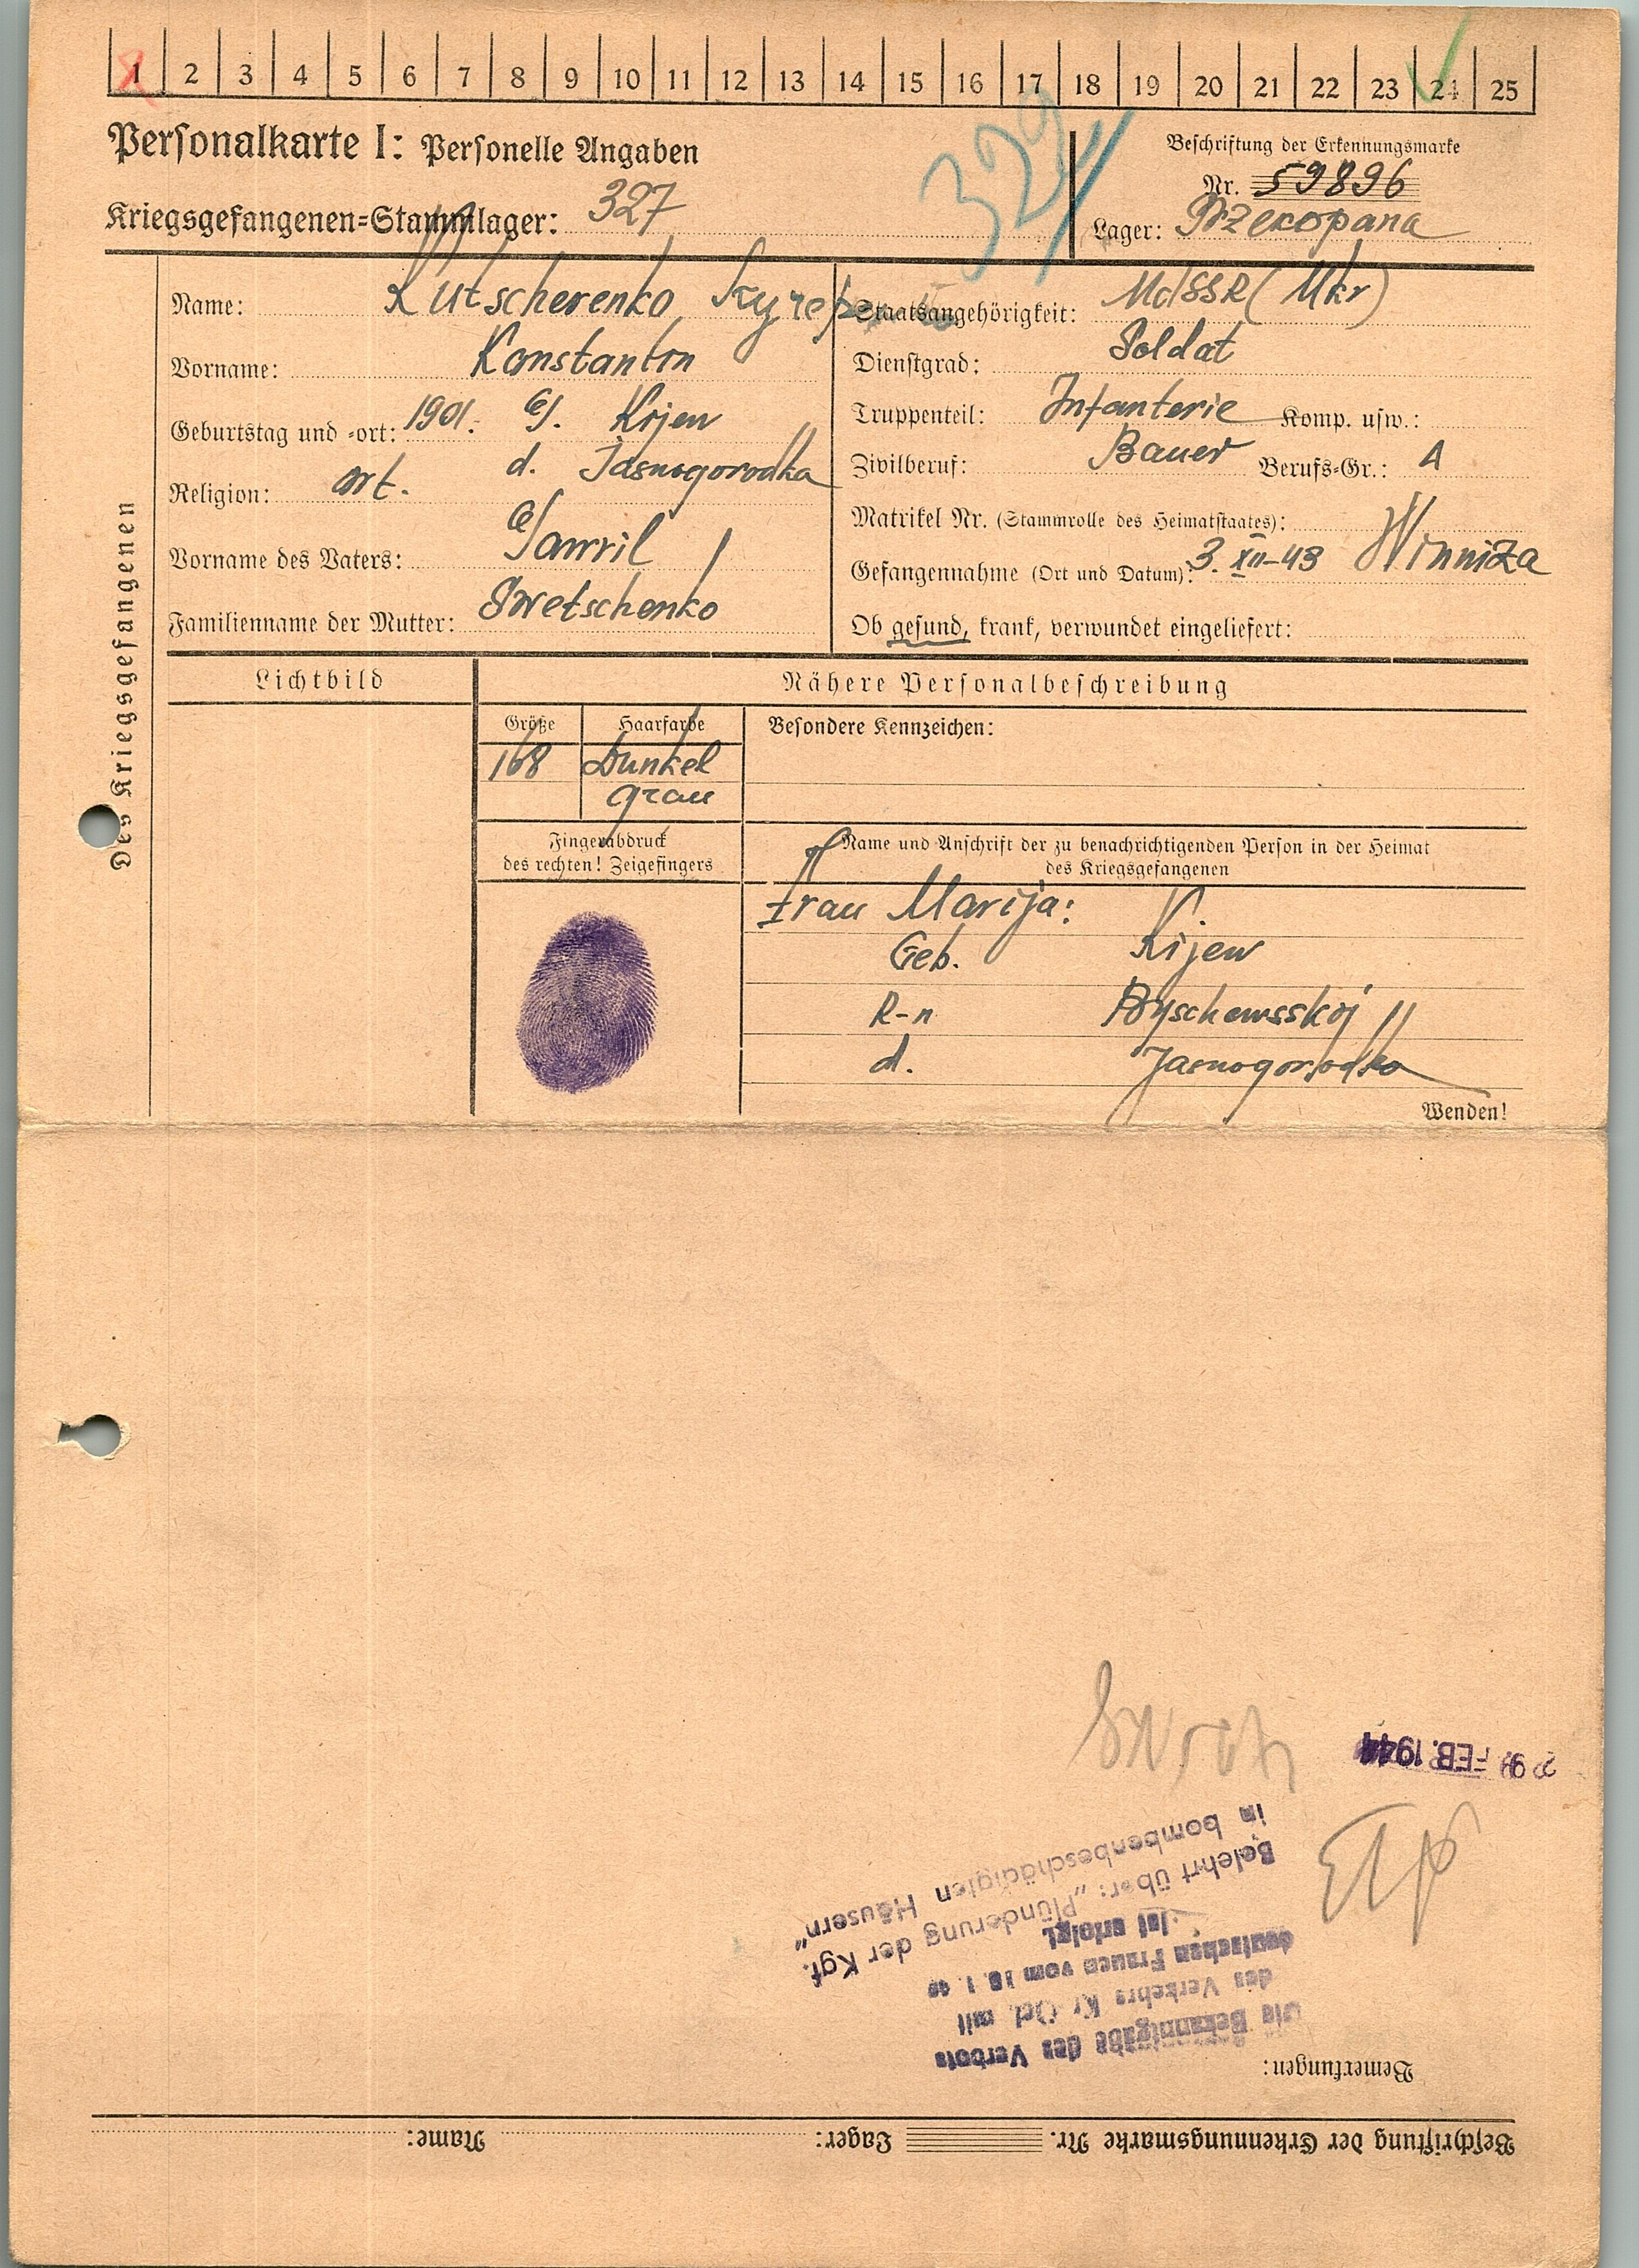 1 2 3 4 5 6 7 8 9 10 11 12 13 14 15 16 17 18 19 20 21 22 23 24 25
Personalkarte I: Personelle Angaben
Kriegsgefangenen=Stammlager: 327
329
Beschriftung der Erkennungsmarke
Nr. 59896
Lager: Przekopana
Des Kriegsgefangenen
Name: Kutscherenko
Vorname: Konstantin
Geburtstag und =ort: 1901. G. Kijew
d. Jasnogorodka
Religion: ort.
Vorname des Vaters: Gawril
Familienname der Mutter: Swetschenko
Staatsangehörigkeit: UdSSR (Ukr)
Dienstgrad: Soldat
Truppenteil: Infanterie Komp. usw.:
Zivilberuf: Bauer Berufs=Gr.: A
Matrikel Nr. (Stammrolle des Heimatstaates):
Gefangennahme (Ort und Datum): 3. XII-43 Winniza
Ob gesund, krank, verwundet eingeliefert:
Lichtbild
Nähere Personalbeschreibung
Größe Haarfarbe Besondere Kennzeichen:
168 Dunkel
grau
Fingerabdruck
des rechten! Zeigefingers
Name und Anschrift der zu benachrichtigenden Person in der Heimat
des Kriegsgefangenen
Frau Marija:
Geb. Kijew
R-n Byschewsskij
d. Jasnogorodka
Wenden!
Beschriftung der Erkennungsmarke Nr. Lager: Name:
Bemerkungen:
Die Bekanntgabe des Verbots
des Verkehrs Kr. Gef. mit
deutschen Frauen vom 16. 1. 40
ist erfolgt.
Belehrt über: „Plünderung der Kgf.
in bombenbeschädigten Häusern"
FEB. 1944